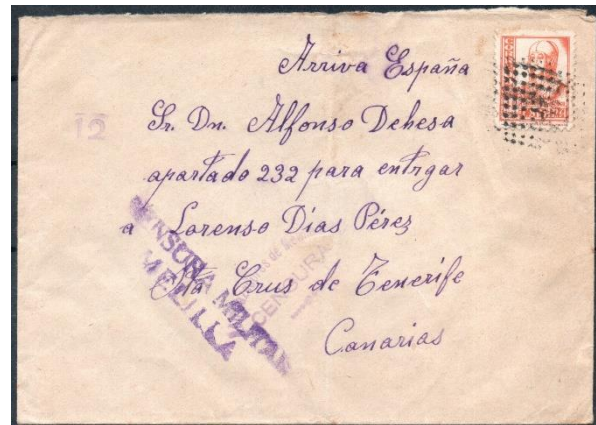 Arriva España
12
Sr. Dn. Alfonso Dehesa
apartado 232 para entrgar
a Lorenso Dias Pérez
Sta Crus de Tenerife
Canarias
CENSURA MILITAR
MELILLA
CENSURA